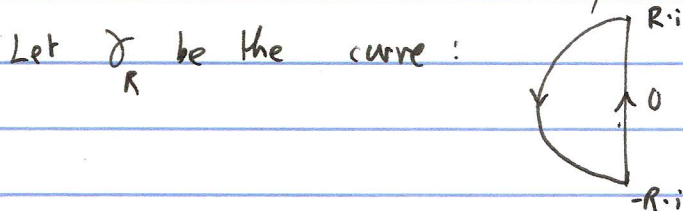 R·i
Let γ be the curve :
R
0
-R·i